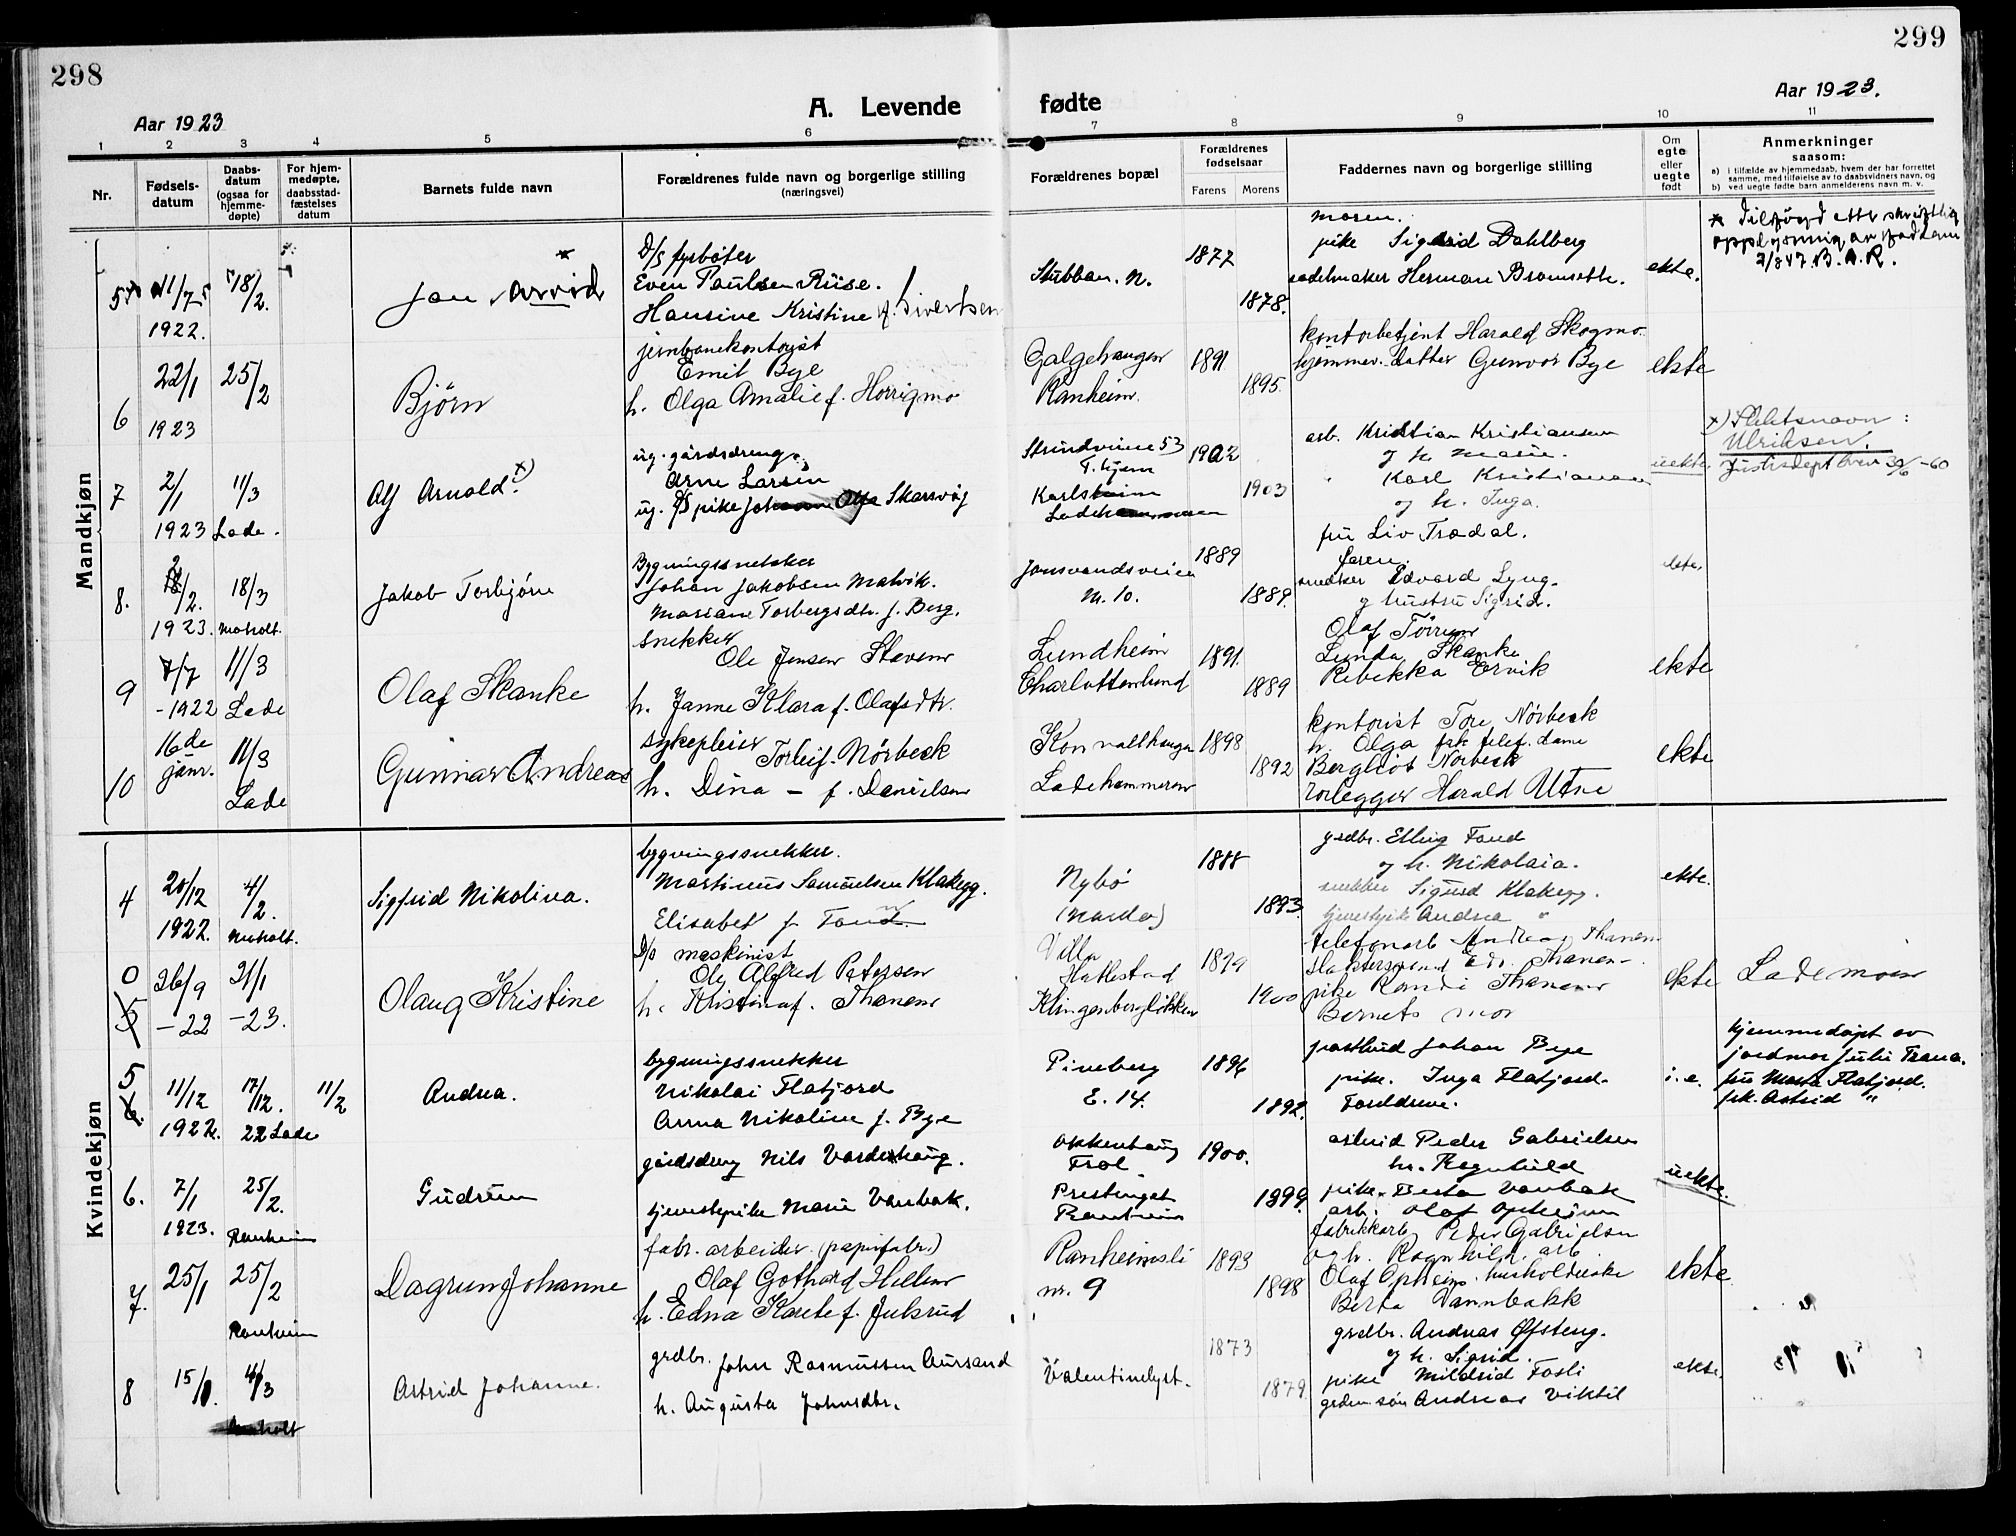 298
299
Aar 1923
A. Levende fødte
Aar 1923.
1 2 3 4 5 6 7 8 9 10 11
Nr.
Fødsels-
datum
Daabs-
datum
(ogsaa for
hjemme-
døpte)
For hjem-
medøpte,
daabsstad-
fæstelses
datum
Barnets fulde navn
Forældrenes fulde navn og borgerlige stilling
(næringsvei)
Forældrenes bopæl
Forældrenes
fødselsaar
Farens
Morens
Faddernes navn og borgerlige stilling
Om
egte
eller
uegte
født
Anmerkninger
saasom:
a) i tilfælde av hjemmedaab, hvem der har forrettet
samme, med tilføielse av to daabsvidners navn, og
b) ved uegte fødte barn anmelderens navn m. v.
Mandkjøn
5
11/7
1922.
18/2.
Jon Arvid
*
D/S fyrbøter
Even Paulsen Riise.
Hansine Kristine f. Sivertsen
Stubban. N.
1877
1878.
moren.
pike Sigrid Dahlberg
sadelmaker Herman Bromseth.
ekte.
* Tilføyd etter skriftlig
opplysning av
B. A. R.
6
22/1
1923
25/2
Bjørn
jernbanekontorist
Emil Bye
h. Olga Amalie f. Horrigmo
Galgehaugen
Ranheim.
1891
1895.
kontorbetjent Harald Skogmo.
hjemmev. datter Gunvor Bye
ekte
7
2/1
1923
11/3
Lade.
Alf Arnold. x)
ug. gårdsdreng
Arne Larsen
ug. pike Skarsvåg
Strindveien 53
T.hjem
Karlsheim
Ladehammeren
1902
1903
arb. Kristian Kristiansen
og h. Marie.
" Karl Kristiansen
og h. Inga.
uekte
x) Slektsnavn:
Ulriksen.
Justisdept brev 30/6-60
8.
18/2.
1923.
18/3
Moholt.
Jakob Torbjørn
Bygningssnekker
Johan Jakobsen Malvik.
Mariane Torbergsdtr. f. Berg.
Jonsvandsveien
Nr. 10.
1889
1889.
fru Liv Trædal.
faren.
snedker Edvard Lyng.
og hustru Sigrid.
ekte.
9
7/7
-1922
11/3
Lade
Olaf Skanke
snekker
Ole Jensen Staven
h. Janne Klara f. Olafsdtr.
Lundheim
Charlottenlund
1891.
1889
Olaf Tørrum
Lunda Skanke
Rebekka Ervik
ekte
10
16de
janr.
11/3
Lade
Gunnar Andreas
sykepleier
Torleif Nørbeck
h. Dina – f. Danielsen
Konvallhaugen
Ladehammeren
1898
1892
kontorist Tore Nørbeck
h. Olga frk telef. dame
Bergliot Nørbeck
rørlegger Harald Utne
ekte
Kvindekjøn
4
20/12
1922.
4/2.
Moholt.
Sigfrid Nikolina.
bygningssnekker.
Martinus Samuelsen Klakegg.
Elisabet f.
Nybö
(Nardo)
1888
1893.
grdbr. Elling
og h. Nikolaia.
snekker Sigurd Klakegg.
tjenestepike Andrea "
ekte.
0
5
26/9
-22
21/1
-23.
Olaug Kristine
D/S maskinist
Ole Alfred Petersen
h. Kristina f. Thanem
Villa
Hallestad
Klingenbergløkken
1899
1900
telefonarb Andreas Thanem
slaktersvend Edv. Thanem
pike Randi Thanem
Barnets mor
ekte
Lademoen
5
6.
11/12
1922.
17/12.
22
11/2
Lade
Andrea.
bygningssnekker
Nikolai Flatjord
Anna Nikoline f. Bye
Pineberg
E. 14.
1896
1892.
postbud Johan Bye
pike. Inga Flatjord.
Foreldrene.
i.e.
hjemmedøpt av
jordmor Julie Trana.
fru Marta Flatjord.
frk. Astrid "
6.
7/1
1923.
25/2.
Ranheim
Gudrun
gårdsdreng Nils Vordenhaug.
tjenestepike Marie Vanbak.
Okkenhaug
Frol
Prestegaet
Ranheim
1900.
1899.
arbeid Peder Gabrielsen
h. Ragnhild
pike. Berta Vanbak
arb. Olaf Opheim
uekte.
7.
25/1
25/2
Ranheim
Dagrun Johanne
fabr. arbeider (papirfabr.)
Olaf Gothard Hellem
h. Edna Karete f. Julsrud
Ranheimsli
nr. 9
1893
1898
fabrikkarb Peder Gabrielsen
og h. Ragnhild. arb
Olaf Opheim. husholderske
Berta Vannbakk
ekte
8
15/
4/3
Moholt
Astrid Johanne.
grdbr. John Rasmussen Aursand
h. Augusta Johnsdtr.
Valentinelyst.
1873
1879.
grdbr. Andreas Øfsteng.
og h. Sigrid.
pike Mildrid Fosli
Andreas Viktil
ekte.